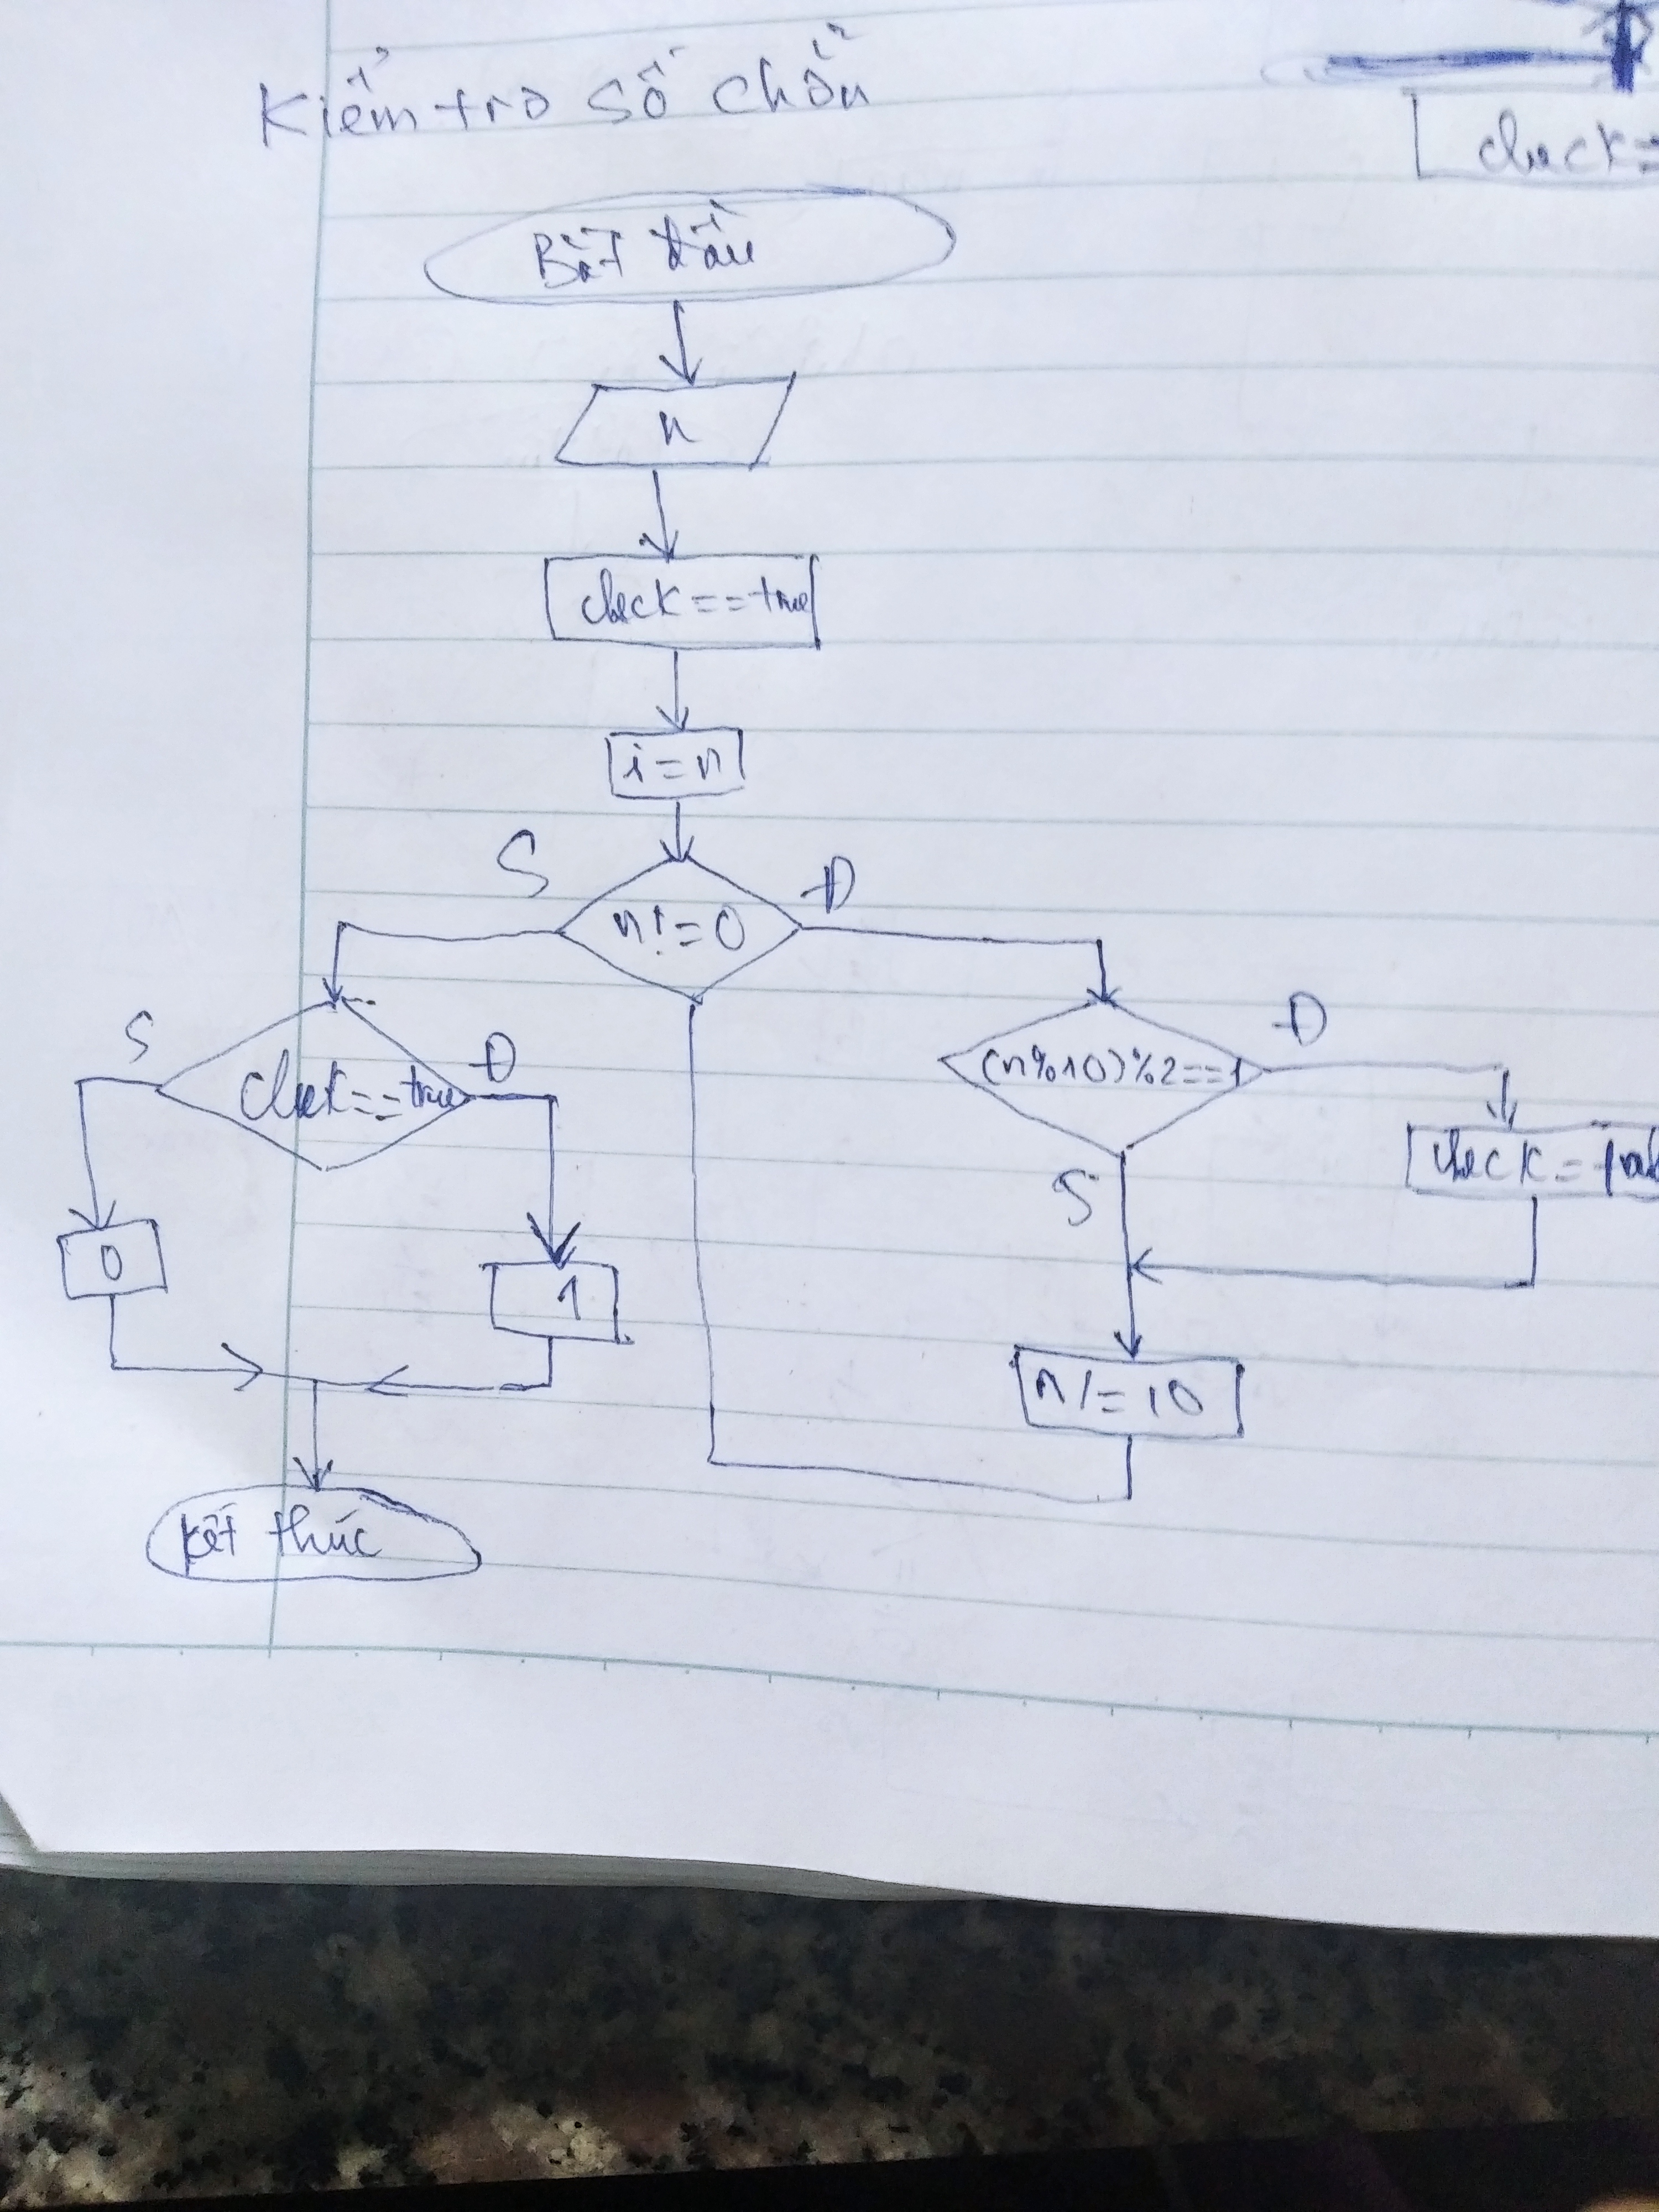 Kiểm tra số chẵn
check=
Bắt đầu
n
check==true
i=n
S
Đ
n!=0
S
Đ
check==true
(n%10)%2==1
Đ
S
0
1
check=
n/=10
Kết thúc